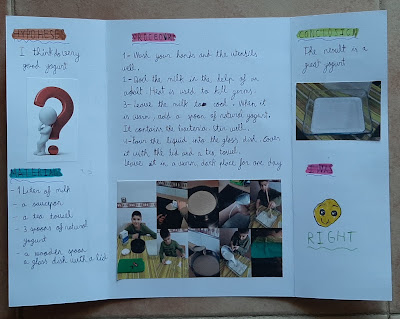 HYPOTHESES
I think is very
good yogurt
MATERIAL
- 1 Liter of milk
- a saucepan
- a tea towel
- 3 spoons of natural
yogurt
- a wooden spoon
a glass dish with a lid
PROCEDURE
1.- Wash your hands ant the utensils
well.
2.- Boil the milk in the help of an
adult. Heat is used to kill germs.
3.- Leave the milk to cool. When it
is warm, add a spoon of natural yogurt.
It contains the bacteria. Stir well.
4.- Pour the liquid into the glass dish. Cover
it with the lid and a tea towel.
leave it in a warm, dark place for one day
CONCLUSION
The result is a
great yogurt
RIGHT